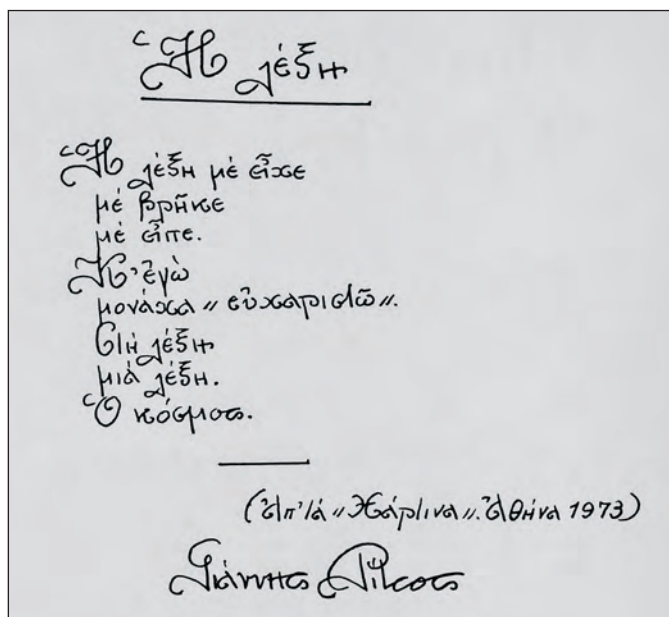 Ἡ λέξη
Ἡ λέξη μέ εἶχε
μέ βρῆκε
μέ εἶπε.
Κ' ἐγὼ
μονάχα « εὐχαριστῶ ».
Στή λέξη
μιά λέξη.
Ὁ κόσμος.
(ἀπ' τά « Χάρτινα ». Ἀθήνα 1973)
Γιάννης Ρίτσος